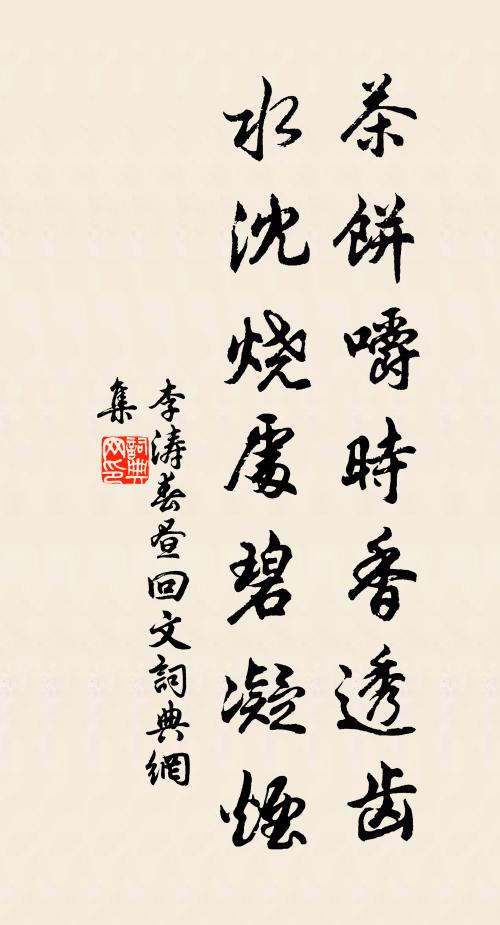 茶餅嚼時香透齿
水沈烧處碧凝煙
李涛春昼回文詞典網
集
詞典网印